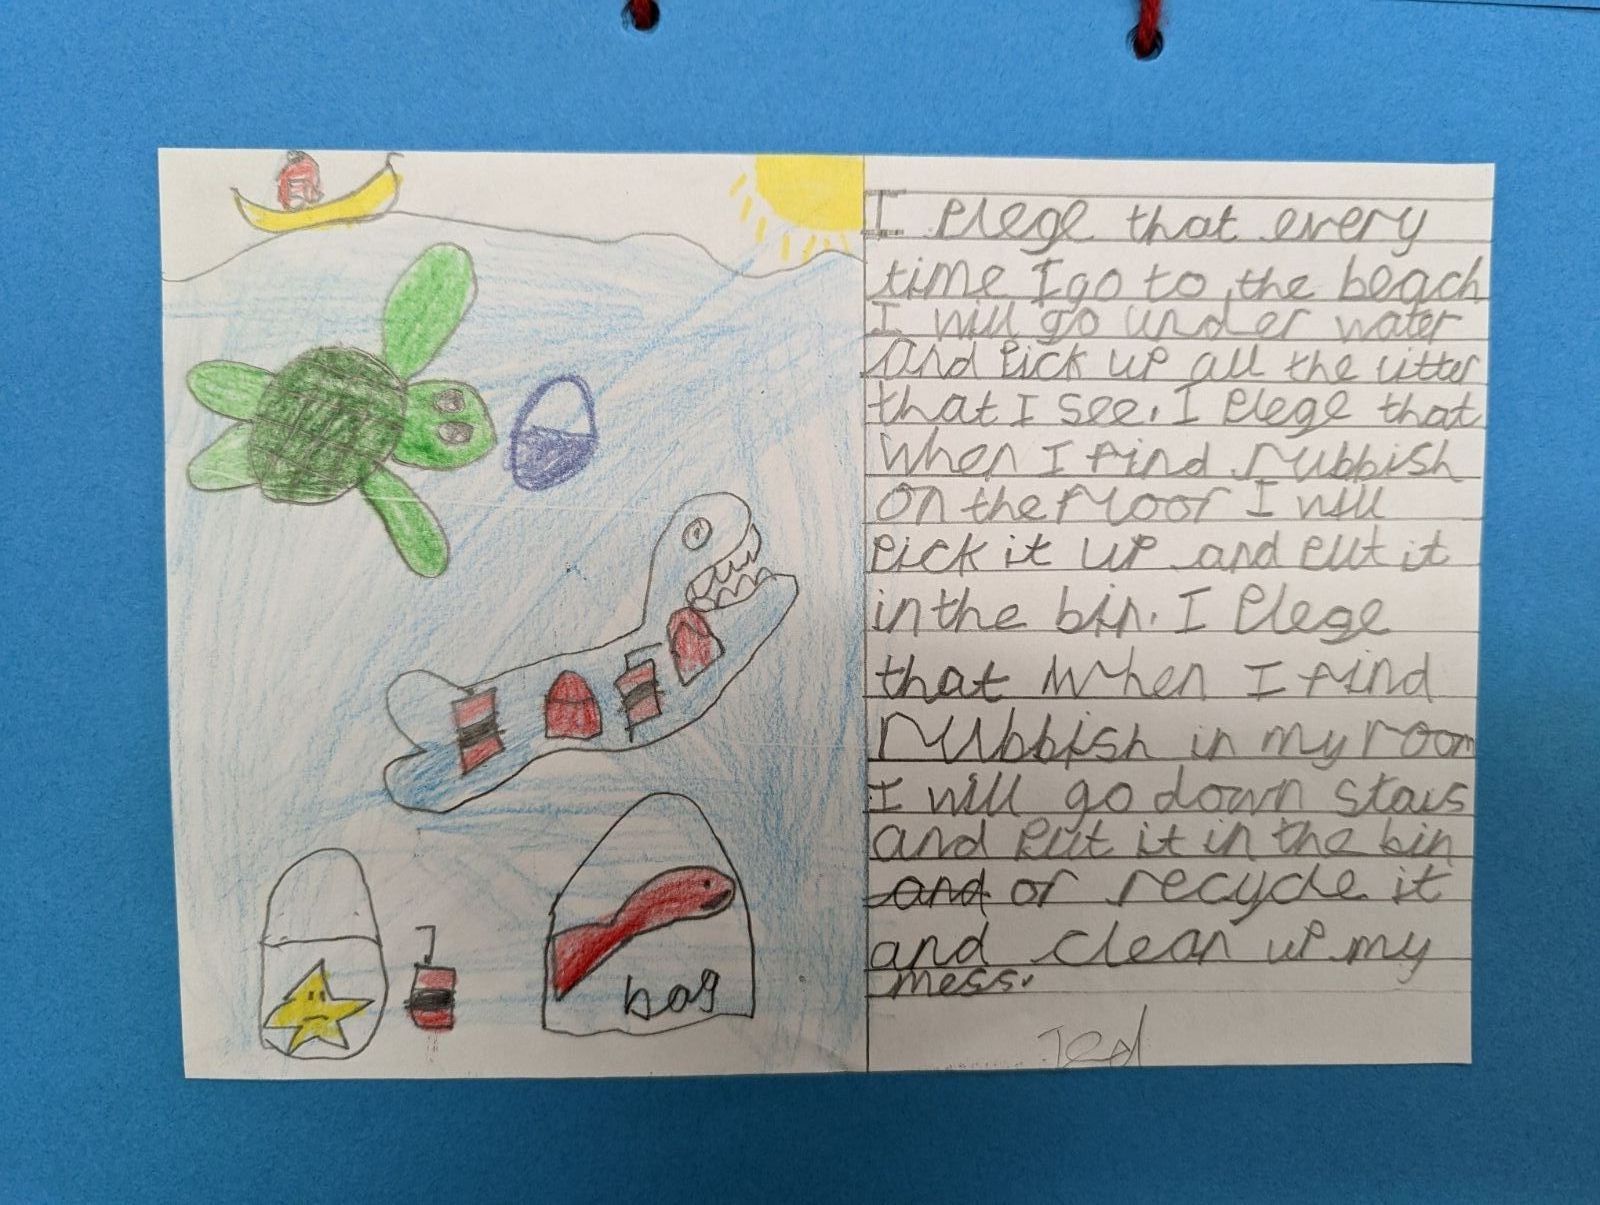 I plege that every
time I go to the beach
I will go under water
and pick up all the litter
that I see. I plege that
when I find rubbish
on the floor I will
pick it up and put it
in the bin. I plege
that when I find
rubbish in my room
I will go down stais
and put it in the bin
and or recycle it
and clean up my
mess.
Jed
bag